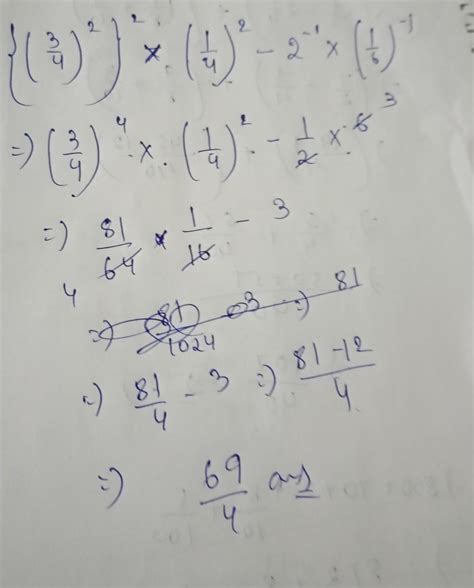 {(3/4)²}² × (1/4)² - 2⁻¹ × (1/6)⁻¹
=) (3/4)⁴ × (1/4)² - 1/2 × 6 3
=) 81/64 × 1/16 - 3
4
=) 81/1024 - 3 =) 81
=) 81/4 - 3 =) 81-12/4
=) 69/4 ans